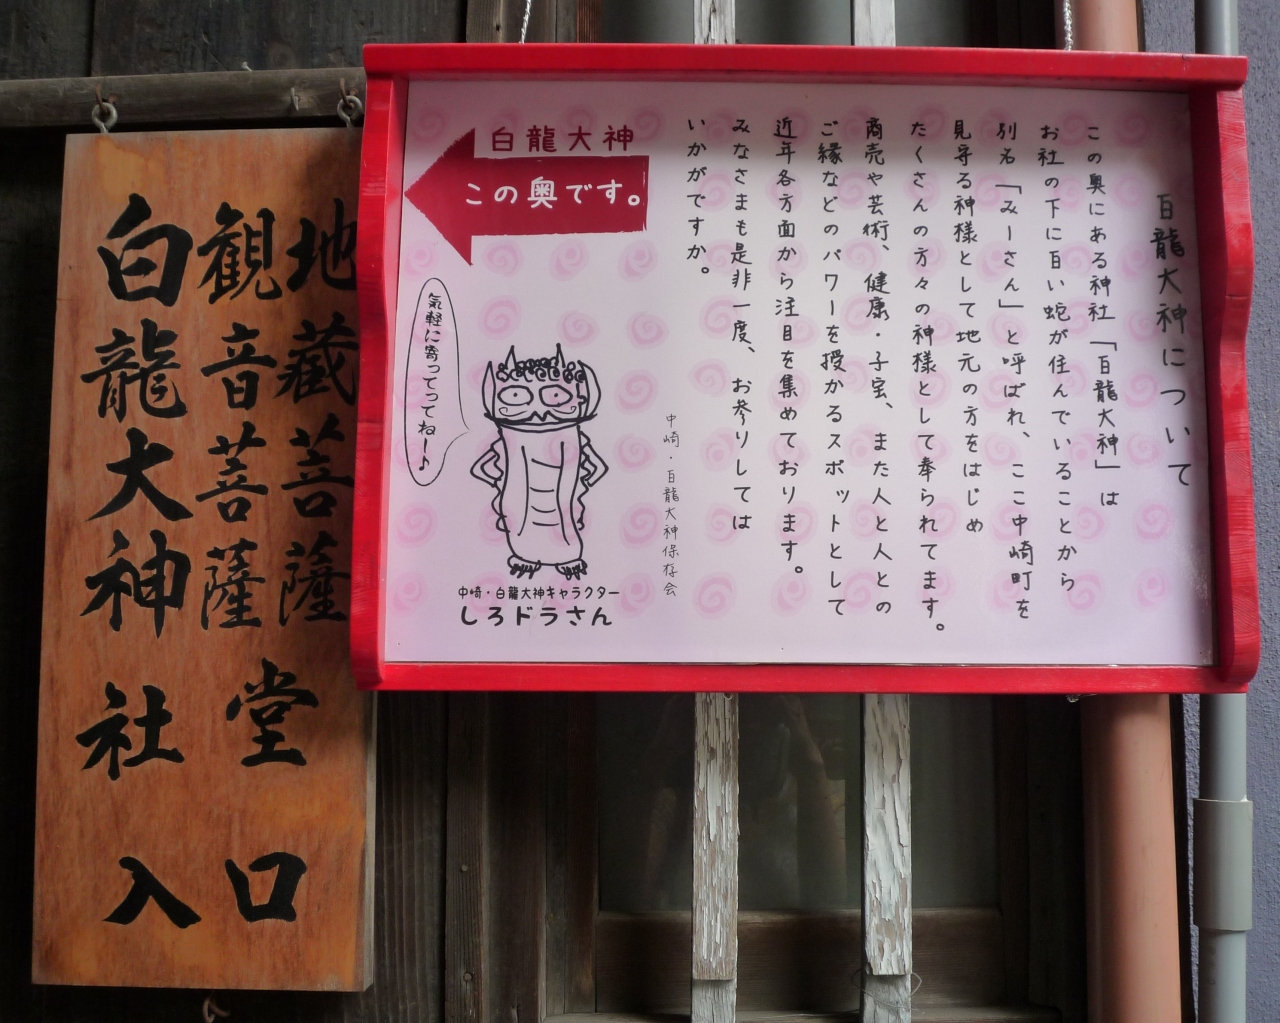 地藏菩薩
観音菩薩堂口
白龍大神社入
白龍大神について
この奥にある神社「白龍大神」は
お社の下に白い蛇が住んでいることから
別名「みーさん」と呼ばれ、ここ中崎町を
見守る神様として地元の方をはじめ
たくさんの方々の神様として奉られてます。
商売や芸術、健康・子宝、また人と人との
ご縁などのパワーを授かるスポットとして
近年各方面から注目を集めております。
みなさまも是非一度、お参りしては
いかがですか。
中崎・白龍大神保存会
白龍大神
この奥です。
気軽に寄ってってねー♪
中崎・白龍大神キャラクター
しろドラさん